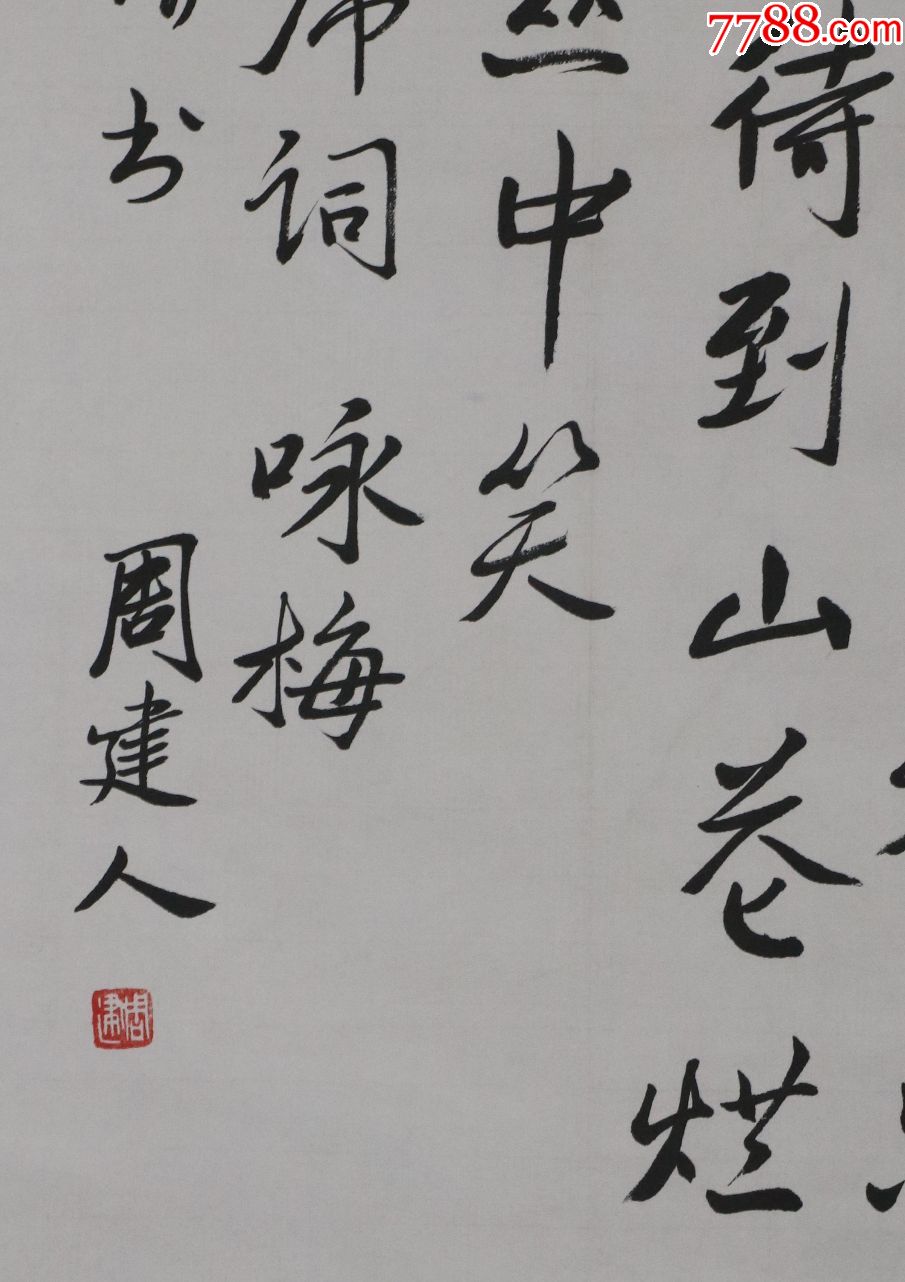 7788.com
待到山花烂
丛中笑
席词 咏梅
书 周建人
周建